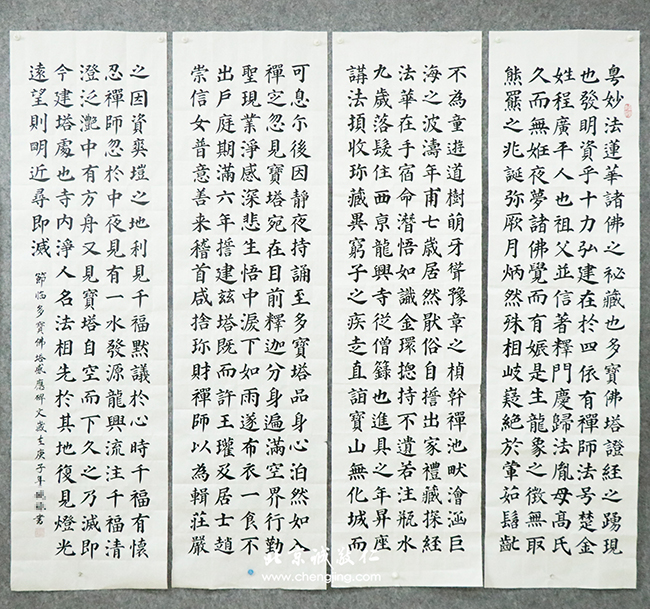 粤妙法蓮華諸佛之秘藏也多寶佛塔證経之踴現
也發明資乎十力弘建在於四依有禪師法号楚金
姓程廣平人也祖父並信著釋門慶歸法胤母高氏
久而無姙夜夢諸佛覺而有娠是生龍象之徵無取
熊羆之兆誕弥厥月炳然殊相岐嶷絕於葷茹髫齔
不為童遊道樹萌牙聳豫章之楨幹禪池畎澮涵巨
海之波濤年甫七歲居然猒俗自誓出家禮藏探経
法華在手宿命潛悟如識金環揔持不遺若注瓶水
九歲落髮住西京龍興寺從僧籙也進具之年昇座
講法頓收珎藏異窮子之疾走直詣寶山無化城而
可息尒後因靜夜持誦至多寶塔品身心泊然如入
禪定忽見寶塔宛在目前釋迦分身遍滿空界行勤
聖現業淨感深悲生悟中淚下如雨遂布衣一食不
出戶庭期滿六年誓建茲塔既而許王瓘及居士趙
崇信女普意善来稽首咸捨珎財禪師以為輯莊嚴
之因資爽塏之地利見千福默議於心時千福有懷
忍禪師忽於中夜見有一水發源龍興流注千福清
澄泛灩中有方舟又見寶塔自空而下久之乃滅即
今建塔處也寺内淨人名法相先於其地復見燈光
遠望則明近尋即滅
節临多寶佛塔感應碑文歲在庚子年書
北京诚敬仁
www.chengjing.com